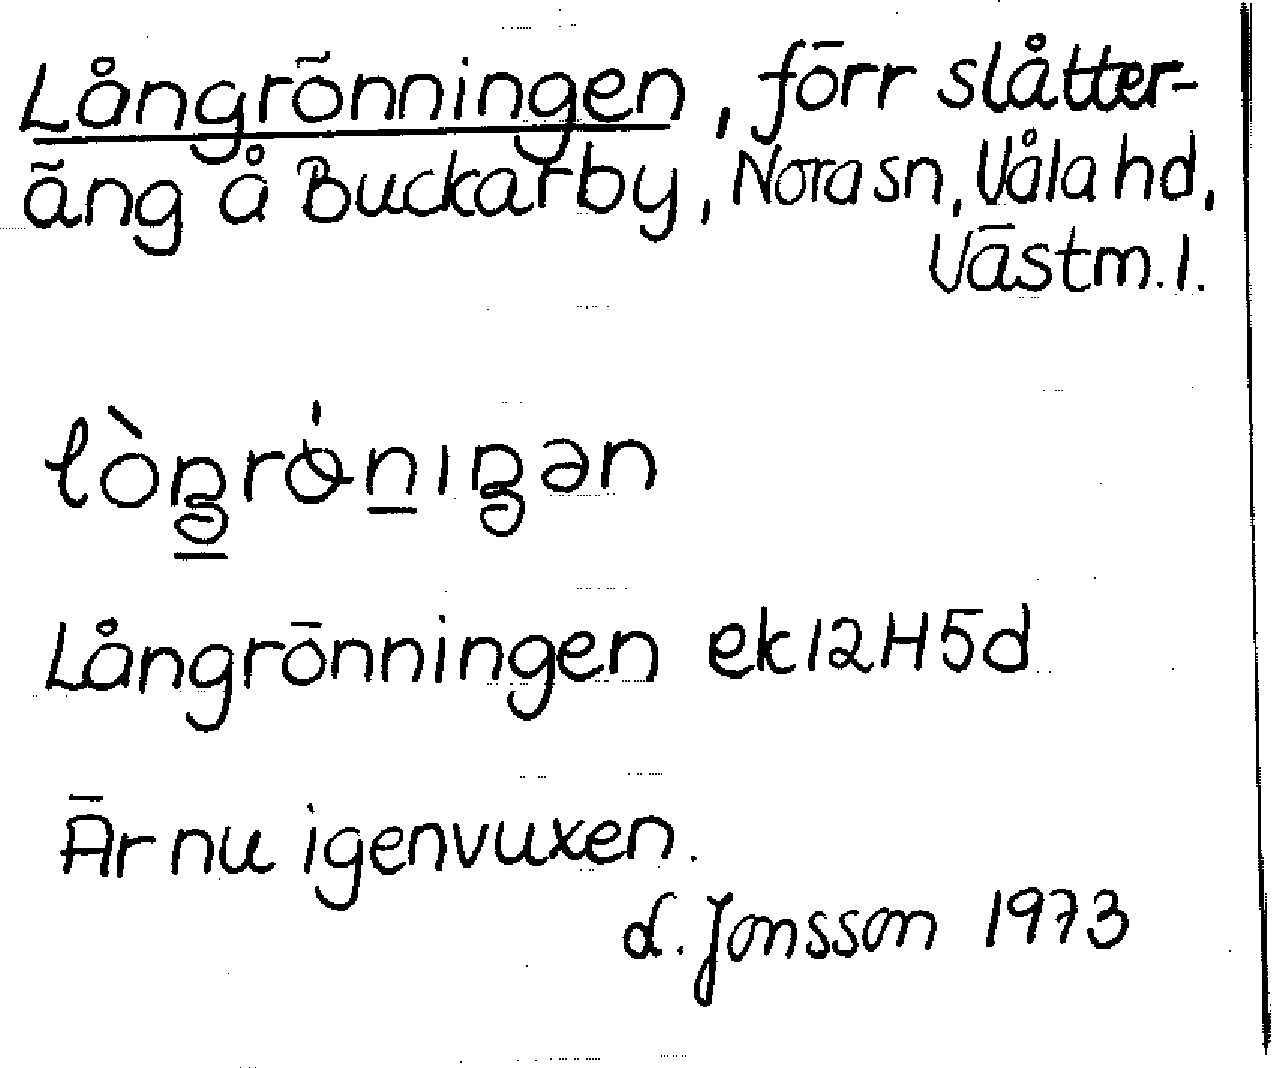 Långrönningen, förr slåtter-
äng å Buckarby, Nora sn, Våla hd,
Västm. l.
Långrönningen ek 12H5d
Är nu igenvuxen.
Jonsson 1973